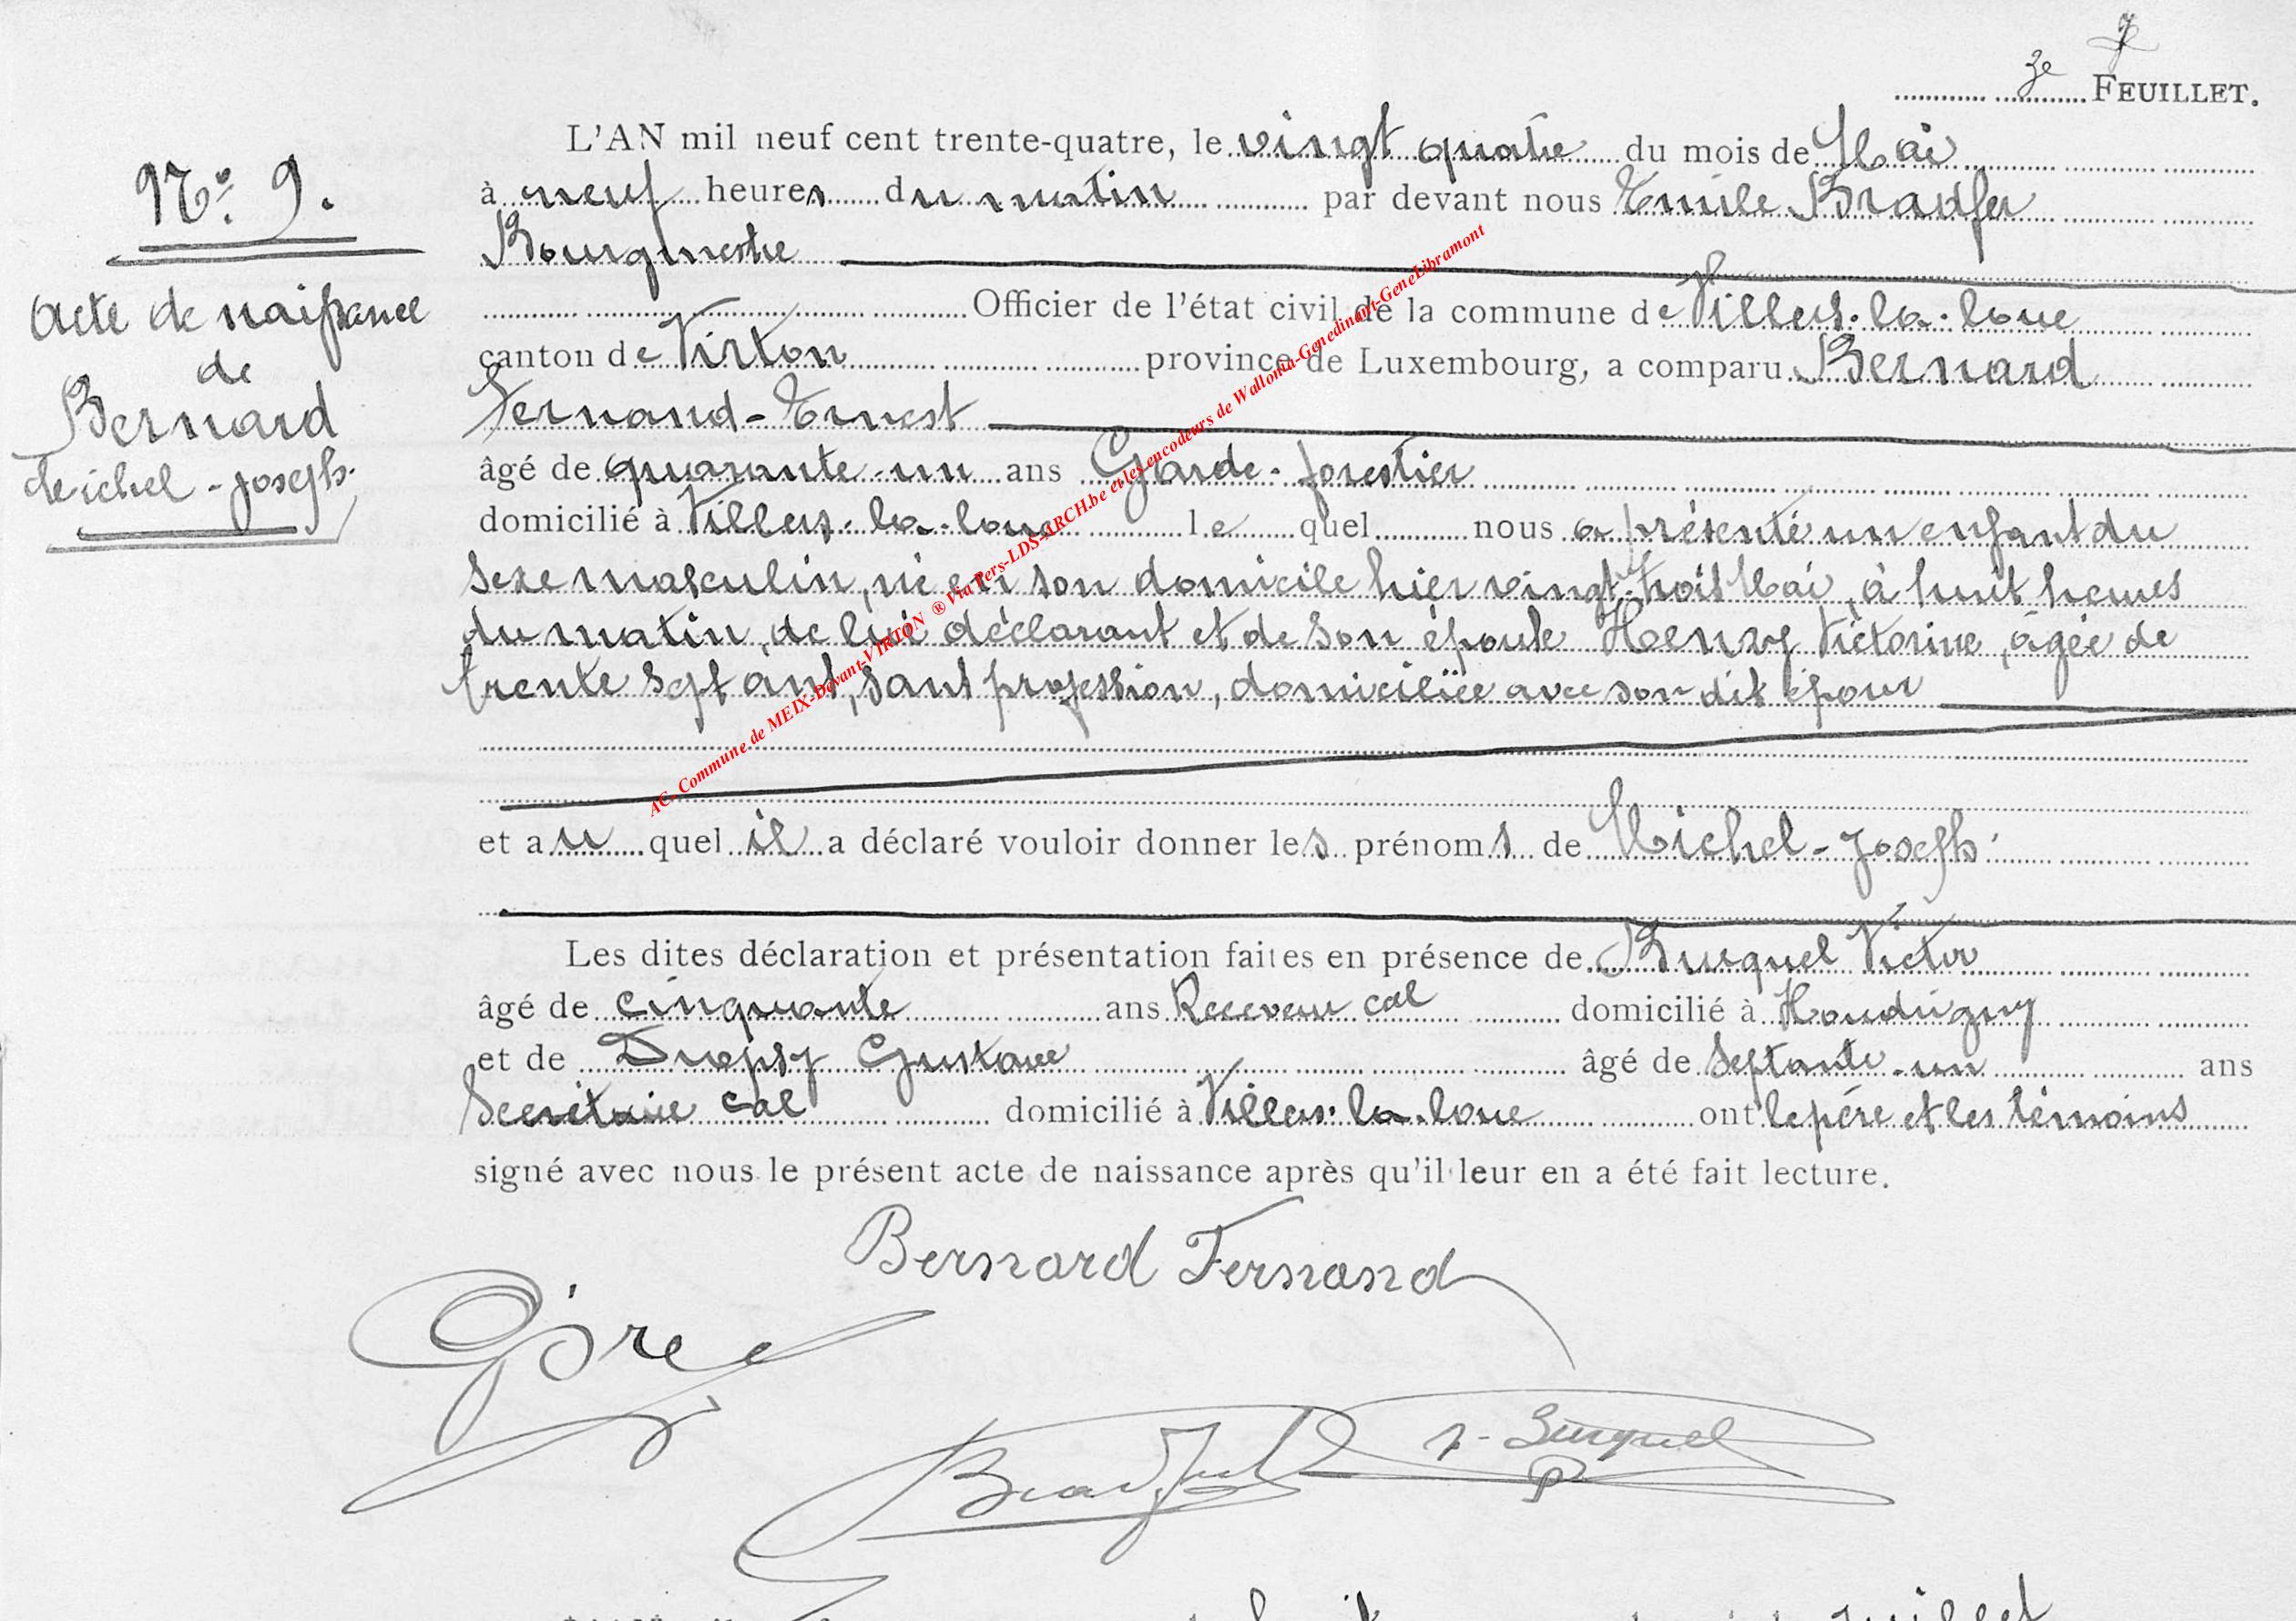 7
3e FEUILLET.
L'AN mil neuf cent trente-quatre, le vingt quatre du mois de Mai
à neuf heures du matin par devant nous Emile Bradfer
Bourgmestre
Officier de l'état civil de la commune de Villers-la-loue
canton de Virton province de Luxembourg, a comparu Bernard
Fernand-Ernest
âgé de quarante-un ans Garde-forestier
domicilié à Villers-la-loue le quel nous a présenté un enfant du
sexe masculin, né en son domicile hier vingt-trois Mai, à huit heures
du matin, de lui déclarant et de son épouse Henry Victorine, âgée de
trente sept ans, sans profession, domiciliée avec son dit époux
et au quel il a déclaré vouloir donner les prénoms de Michel-Joseph.
Les dites déclaration et présentation faites en présence de Burquel Victor
âgé de cinquante ans Receveur cal domicilié à Houdrigny
et de Dropsy Gustave âgé de septante-un ans
Secrétaire cal domicilié à Villers-la-loue ont le père et les témoins
signé avec nous le présent acte de naissance après qu'il leur en a été fait lecture.
No. 9.
Acte de naissance
de
Bernard
Michel-Joseph.
AC. Commune de MEIX-Devant-VIRTON ® Via Pers-LDS-ARCH.be et les encodeurs de Wallonia-Genedinant-GeneLibramont
Bernard Fernand
Bradfer
V. Burquel